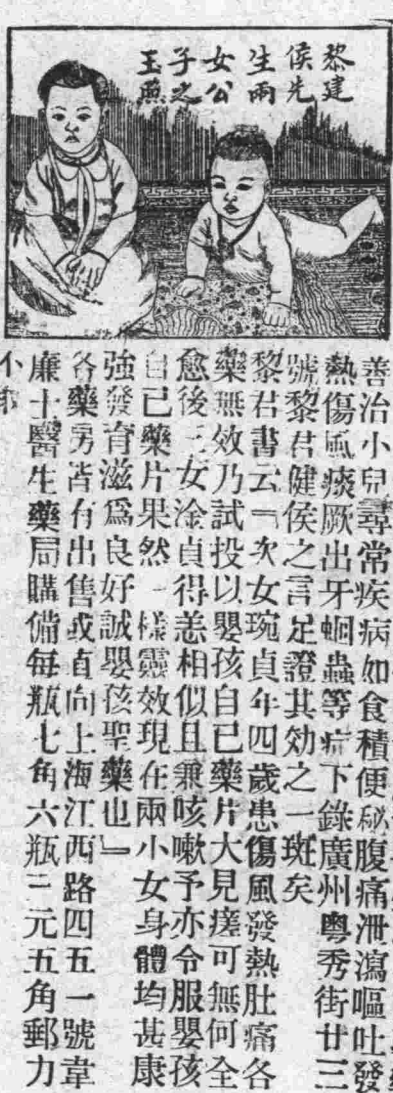 黎建
侯先
生兩
女公
子之
玉照
善治小兒尋常疾病如食積便秘腹痛泄瀉嘔吐發
熱傷風痰厥出牙蛔蟲等症下錄廣州粵秀街廿三
號黎君健侯之言足證其効之一斑矣
黎君書云『次女琬貞年四歲患傷風發熱肚痛各
藥無效乃試投以嬰孩自己藥片大見瘥可無何全
愈後三女淦貞得恙相似且兼咳嗽予亦令服嬰孩
自己藥片果然一樣靈效現在兩小女身體均甚康
強發育滋爲良好誠嬰孩聖藥也』
各藥房皆有出售或直向上海江西路四五一號韋
廉士醫生藥局購備每瓶七角六瓶三元五角郵力
不取